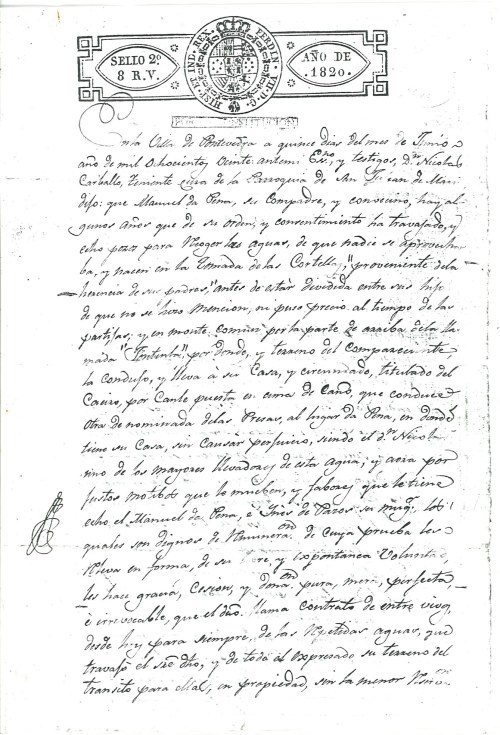 SELLO 2º
8 R. V.
HISP. ET IND. REX. FERDIN. VII. D. G.
AÑO DE
1820.
POR CONSTITUCION
En la Villa de Pontevedra a quince dias del mes de Junio
año de mil ochocientos veinte: antemi Essno, y testigos, Dn. Nicolas
Carballo, Teniente cura de la Parroquia de San Julian de Mari
dijo: que Manuel da Pena, su Compadre, y convecino, hay al
gunos años que de su orden, y consentimiento ha travajado, y
echo pozos para recoger las aguas, de que nadie se aprovecha
ba, y nacen en la Tomada de las Cortellas, "proveniente dela
herencia de sus padres," antes de estar dividida entre sus hijos
de que no se hizo mencion, ni puso precio al tiempo de las
partijas; y en monte comun por la parte de arriba dela lla
mada "Tintinta", por donde, y terreno del compareciente
la condujo, y lleva à su Casa, y circundado, titulado del
Caeiro, por Canle puesta en cima de Cano, que conduce
otra denominada delas Presas, al lugar da Pena, en donde
tiene su Casa, sin causar perjuicio, siendo el dn. Nicolas
uno de los mayores llevadores de esta agua, y aora por
justos motibos que lo mueben, y fabores que le tiene
echo el Manuel da Pena, è Ines de Pazos su muger, los
quales son dignos de remuneron. de cuya prueba les
releva en forma, de su libre, y expontanea voluntad
les hace gracia, cesion, y donon. pura, mera, perfecta,
è irrevocable, que el dro. llama contrato de entre vivos,
desde hoy para siempre, de las repetidas aguas, que
travajó el sre dho, y de todo el expresado su terreno del
transito para ellas, en propiedad, sin la menor